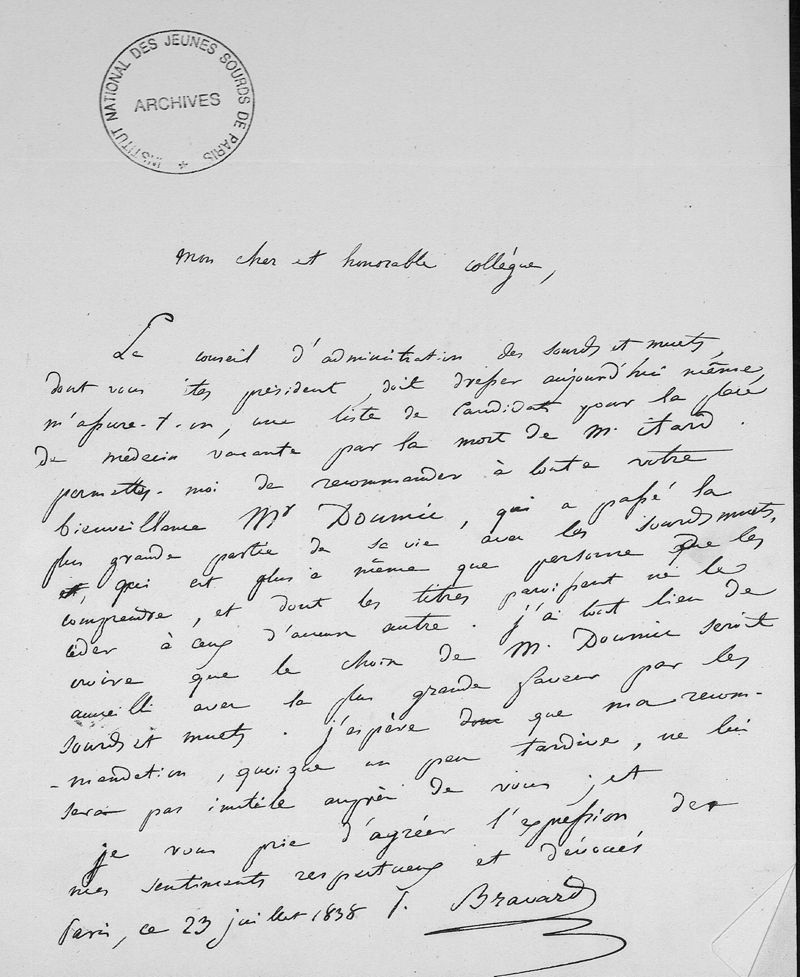 INSTITUT NATIONAL DES JEUNES SOURDS DE PARIS *
ARCHIVES
Mon cher et honorable collégue,
Le conseil d'administration des sourds et muets,
dont vous êtes président, doit dresser aujourd'hui même,
m'assure-t-on, une liste de candidats pour la place
de médecin vacante par la mort de M. itard.
permettez-moi de recommander à toute votre
bienveillance Mr Doumic, qui a passé la
plus grande partie de sa vie avec les sourds muets,
et, qui est plus à même que personne de les
comprendre, et dont les titres paroissent ne le
céder à ceux d'aucun autre. j'ai tout lieu de
croire que le choix de M. Doumic seroit
accueilli avec la plus grande faveur par les
sourds et muets. j'espère donc que ma recom-
-mandation, quoique un peu tardive, ne lui
sera pas inutile auprès de vous, et
je vous prie d'agréer l'expression de
mes sentiments respectueux et dévoués
Paris, ce 23 juillet 1838 T. Bravard